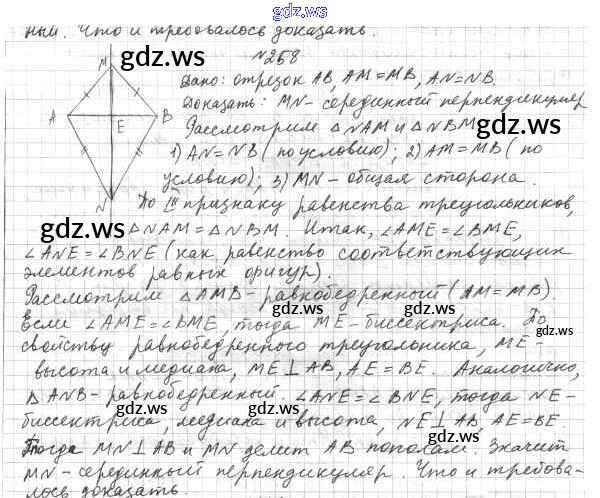 gdz.ws
ный. Что и требовалось доказать.
gdz.ws gdz.ws
№258
M
Дано: отрезок AB, AM=MB, AN=NB.
Доказать: MN- серединный перпендикуляр
A B E
Рассмотрим △NAM и △NBM
gdz.ws
1) AN=NB (по условию); 2) AM=MB (по
условию); 3) MN- общая сторона.
N
По III признаку равенства треугольников,
gdz.ws gdz.ws
△NAM=△NBM. Итак, ∠AME=∠BME,
∠ANE=∠BNE (как равенство соответствующих
элементов равных фигур).
Рассмотрим △AMB- равнобедренный (AM=MB).
Если ∠AME=∠BME, тогда ME-биссектриса. По
gdz.ws
свойству равнобедренного треугольника, ME-
высота и медиана, ME⊥AB, AE=BE. Аналогично,
△ANB- равнобедренный. ∠ANE=∠BNE, тогда NE-
gdz.ws
биссектриса, медиана и высота, NE⊥AB, AE=BE.
gdz.ws
Тогда MN⊥AB и MN делит AB пополам. Значит
MN- серединный перпендикуляр. Что и требова-
gdz.ws
лось доказать.